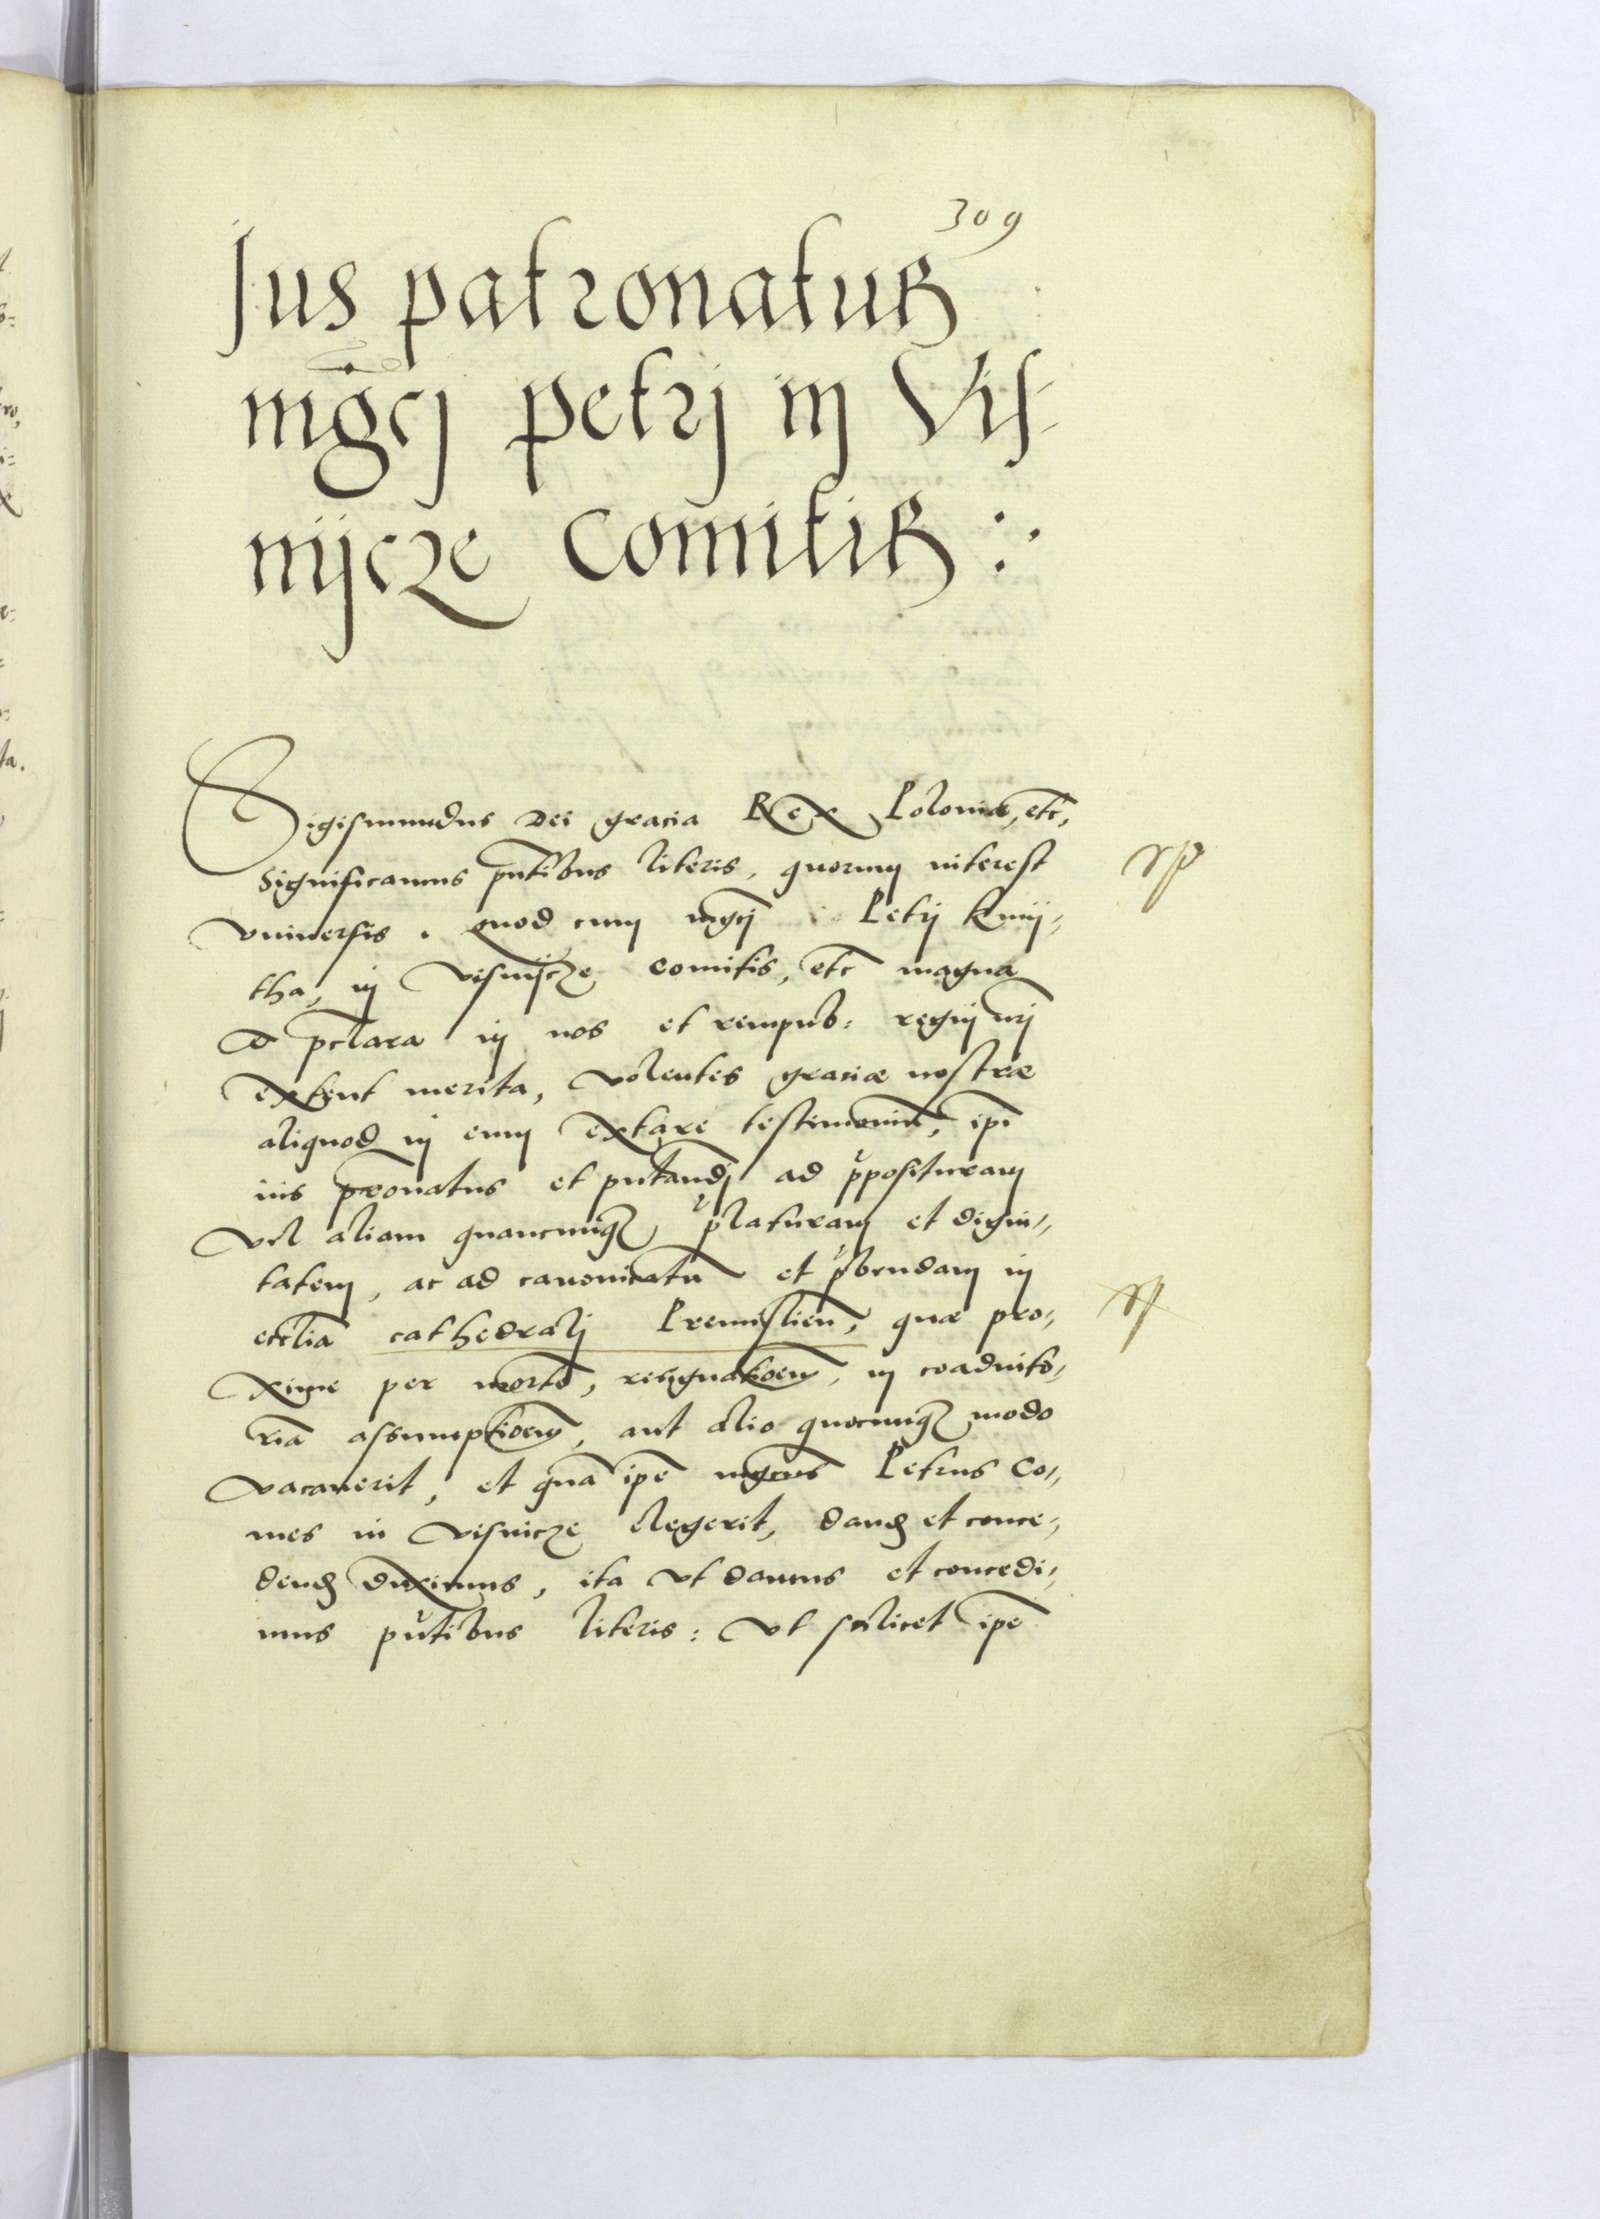 309
Jus patronatus
mgcj petrj in Vis-
nijcze Comitis :
Sigismundus Dei gracia Rex Poloniæ, etc,
Significamus pntibus literis, quorum interest
vniuersis. quod cum mgcj Petrj Kmij-
tha, in Visnijcze comitis, etc magna
& pclara in nos et rempub: regnj nrj
extent merita, volentes graciæ nostræ
aliquod in eum extare testimoniu, ipi
ius pronatus et pntandj ad pposituram
vel aliam quamcunq platuram et digni-
tatem, ac ad canonicatu et pbendam in
ecclia cathedralj Premislien, quæ pro-
xime per morte, resignatioem, in coadiuto-
ria assumptioem, aut alio quocunq modo
vacauerit, et qua ipe mgcus Petrus Co-
mes in Visnicze elegerit, dand et conce-
dend duximus, ita vt damus et concedi-
mus pntibus literis: vt scilicet ipe